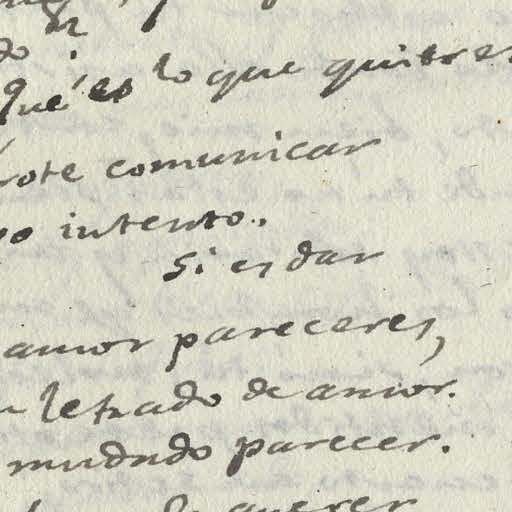 do
Qué es lo que quieres
comunicar
intento.
Si es dar
amor pareceres,
letrado de amor.
mudado parecer.
querer